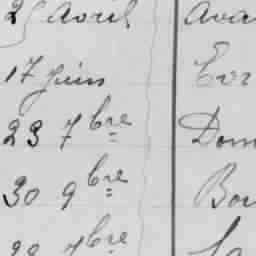 25 avril Ava
17 Juin
23 7bre Dom
30 9bre Bou
7bre